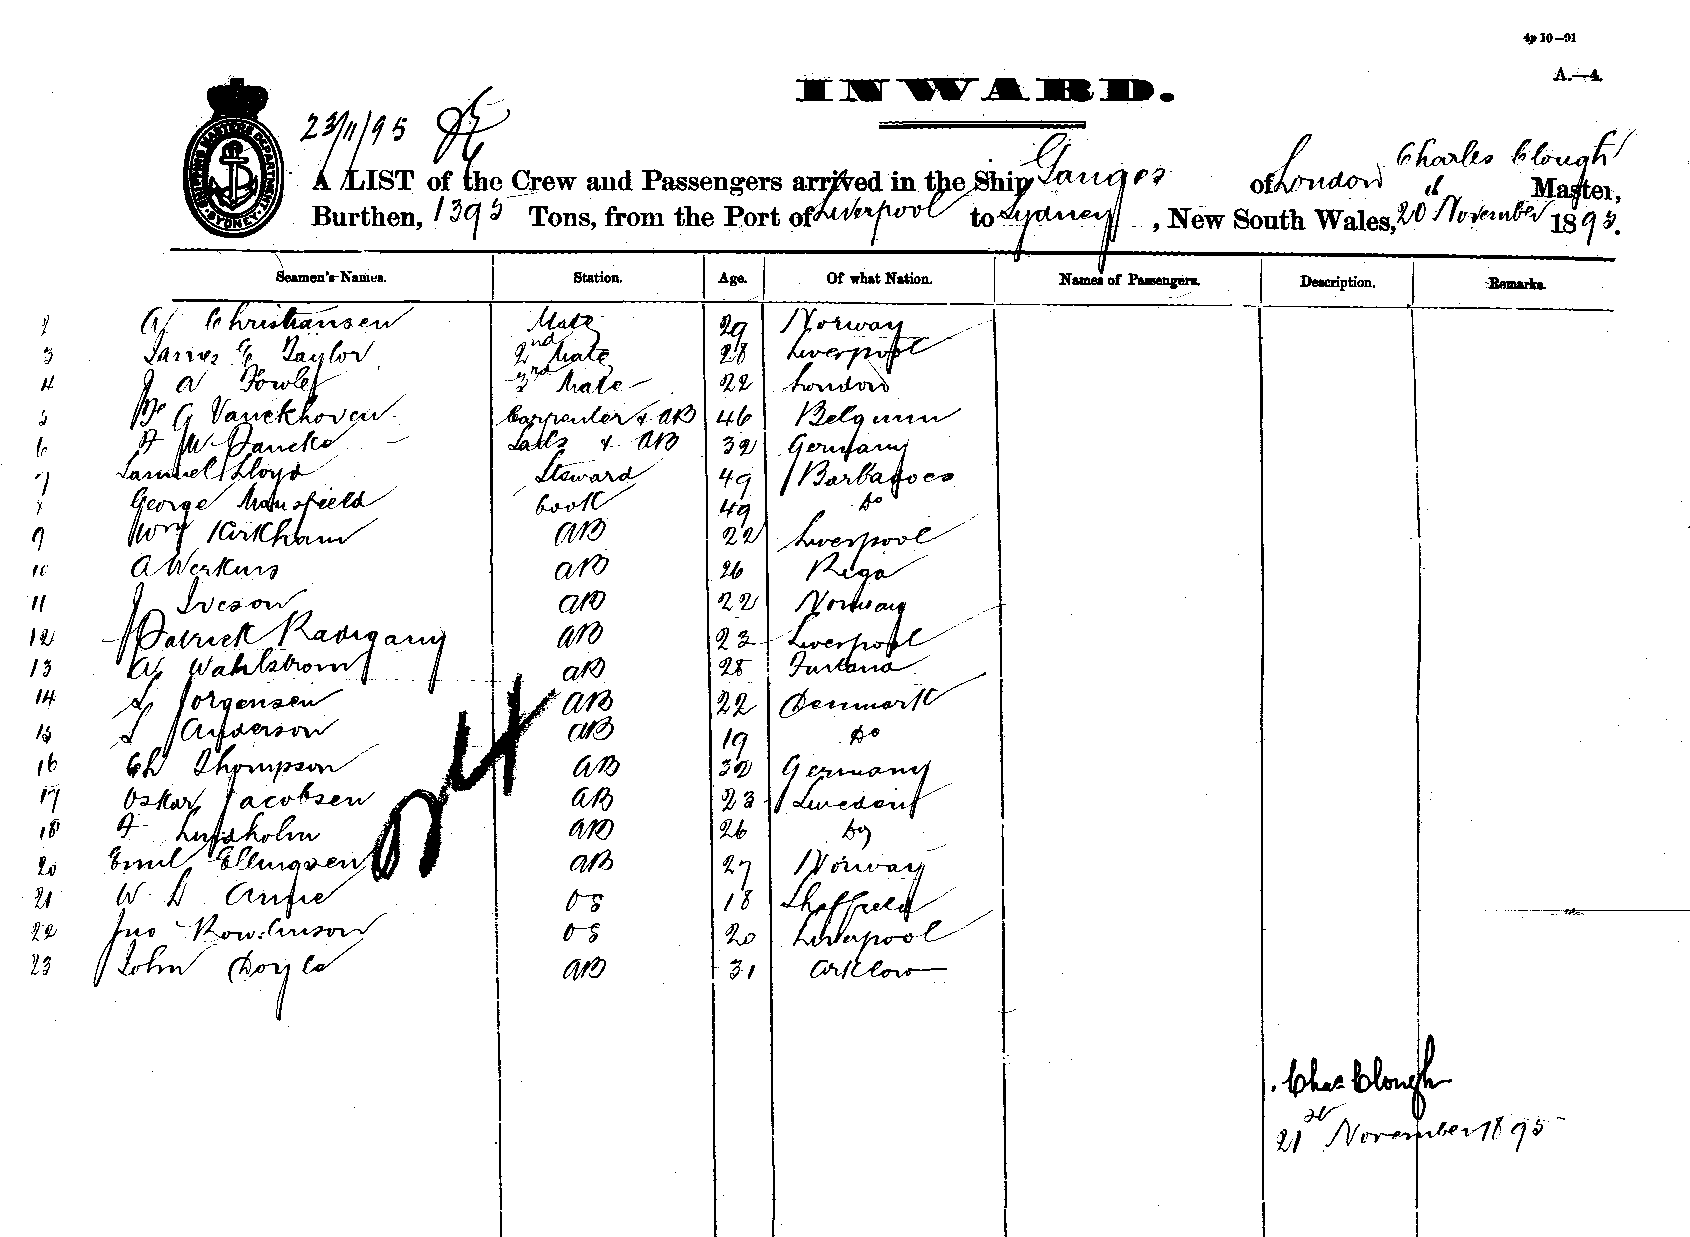 4p 10—91
A.—4.
INWARD.
23/11/95
Charles Clough
A LIST of the Crew and Passengers arrived in the Ship Ganges of London Master,
Burthen, 1395 Tons, from the Port of Liverpool to Sydney, New South Wales, 20th November 1895.
Seamen's Names. Station. Age. Of what Nation. Names of Passengers. Description. Remarks.
2 A Christiansen Mate 29 Norway
3 James E Taylor 2nd Mate 28 Liverpool
4 J A Fowler 3rd Mate 22 London
5 G Vanekhoven Carpenter & AB 46 Belgium
6 F W Pancke Sails & AB 32 Germany
7 Samuel Lloyd Steward 49 Barbadoes
8 George Mansfield Cook 49 Do
9 Wm Kirkham AB 22 Liverpool
10 A Werkurs AB 26 Riga
11 J Iveson AB 22 Norway
12 Patrick Radigany AB 23 Liverpool
13 A Wahlstrom AB 28 Finland
14 L Jorgensen AB 22 Denmark
15 L Anderson AB 19 Do
16 Ch Thompson AB 32 Germany
17 Oskar Jacobsen AB 23 Sweden
18 F Lindholm AB 26 Do
20 Emil Ellingsen AB 27 Norway
21 W D Annie OS 18 Sheffield
22 Jno Rowlinson OS 20 Liverpool
23 John Doyle AB 31 Arklow
24
Chas Clough
21st November 1895